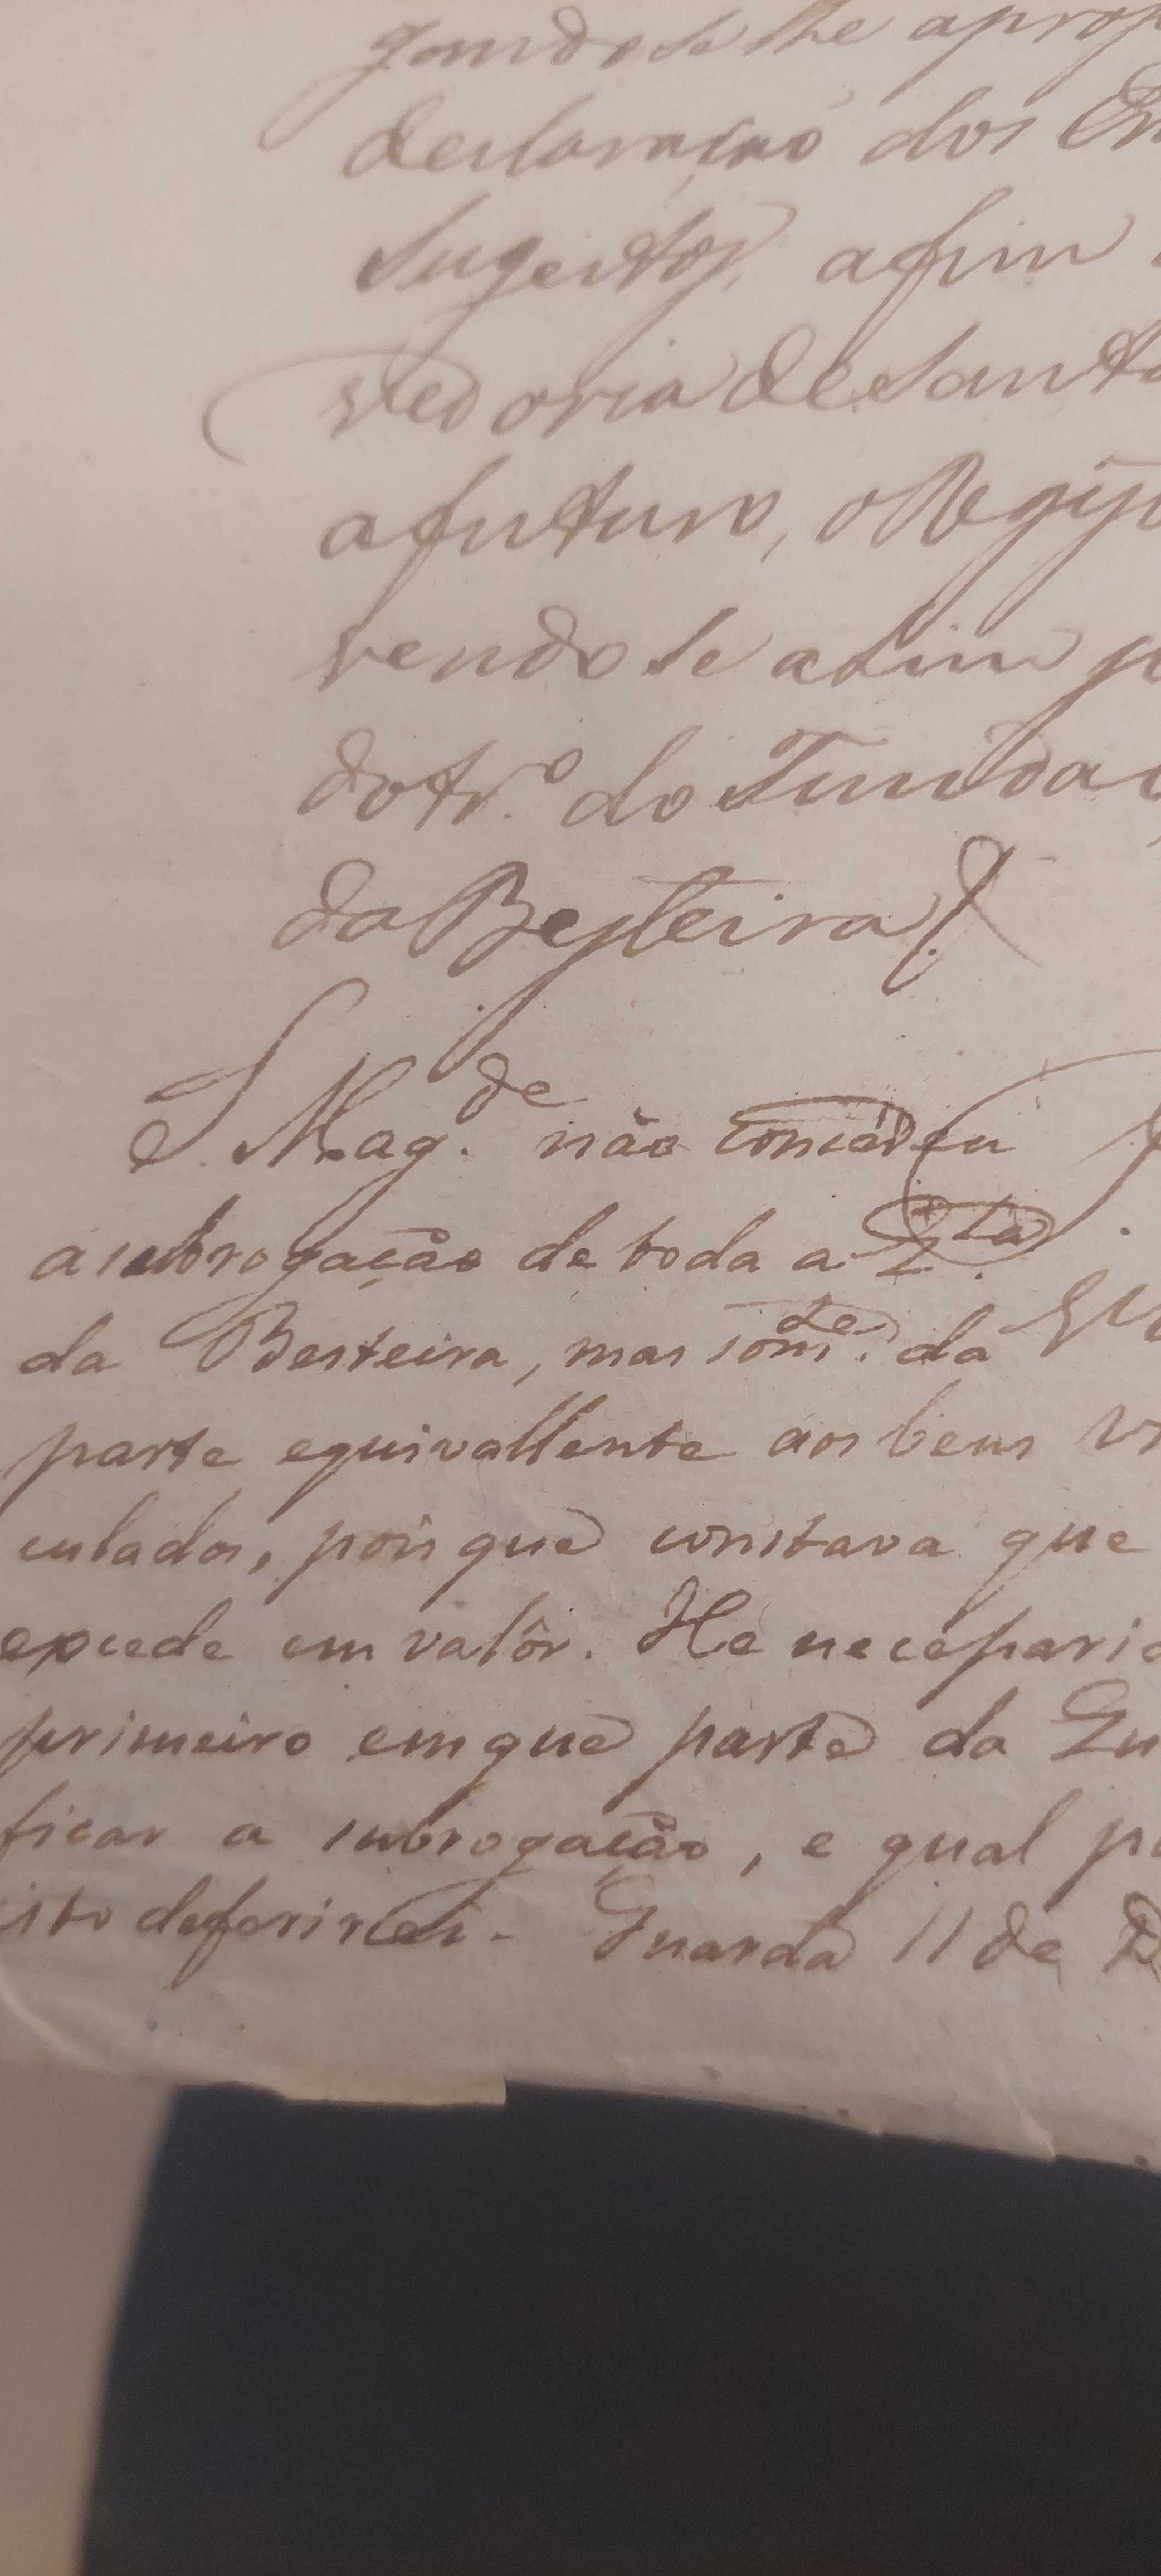 gandoselhe aprop
declaração dos En
sugeitos, afim
vedoria de Santa
afuturo, o Regis
vendose asim p
do tr.º do Fundão
da Besteira
S. Mag.de não concedeu
a subrogação de toda a Q.ta
da Besteira, mas som.te da
parte equivallente aos bens vi
culados, porque constava que
excede em valôr. He necessario
primeiro emque parte da Qu
ficar a subrogação, e qual p
isto deferirei. Guarda 11 de D